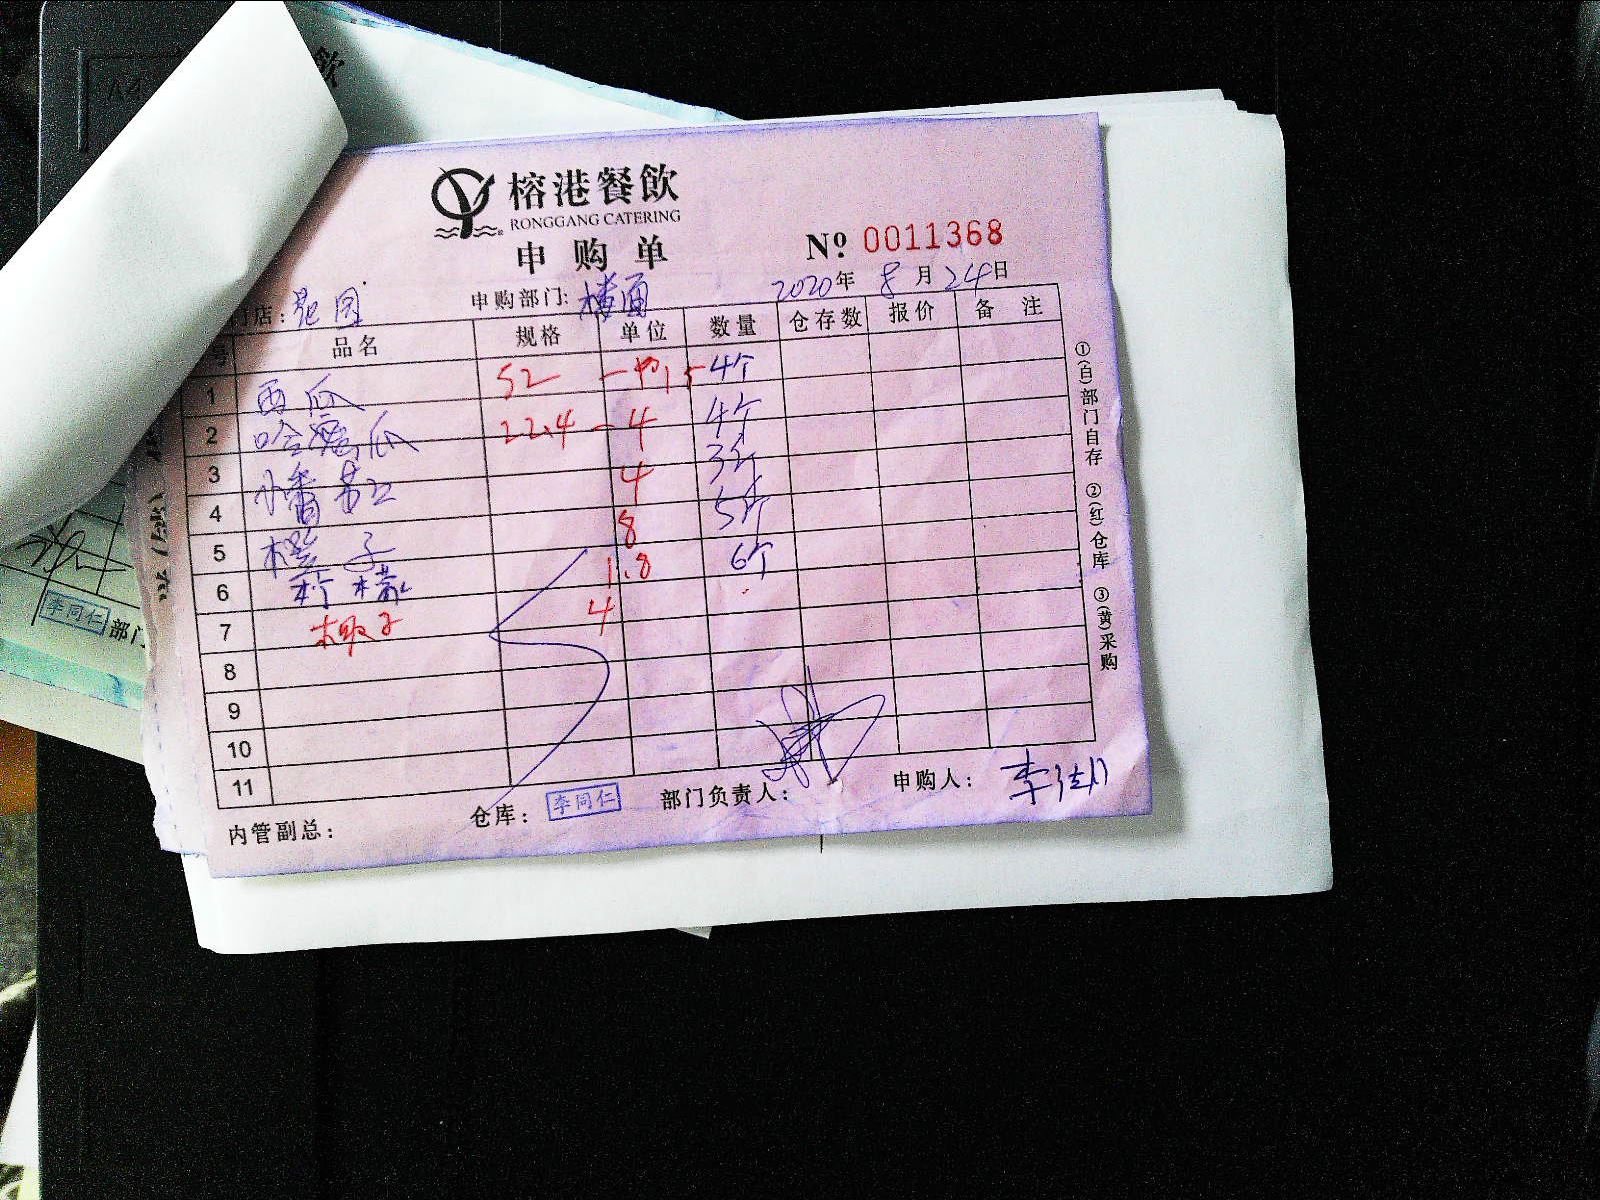 榕港餐飲
RONGGANG CATERING
申购单
№ 0011368
店: 花园 申购部门: 楼面 2020年 8月24日
号 品名 规格 单位 数量 仓存数 报价 备注
1 西瓜 52 4个
2 哈密瓜 22.4 - 4 4个
3 小番茄 4 3斤
4 8 5斤
5 橙子 1.8 6个
6 柠檬
7 椰子 4
8
9
10
11
内管副总: 仓库: 李同仁 部门负责人: 申购人:
①(白)部门自存 ②(红)仓库 ③(黄)采购
李同仁 部门
飲